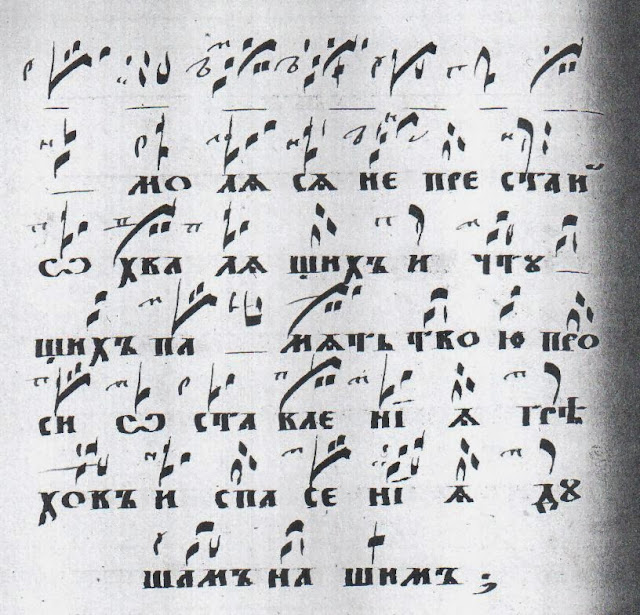 мо лѧ сѧ не пре стаи҆
ѡ хва лѧ щихъ и чтꙋ
щихъ па мѧть тво ю про
си ѡ ста вле нї ѧ грѣ
ховъ и спа се нї ѧ дꙋ
шамъ на шимъ ;